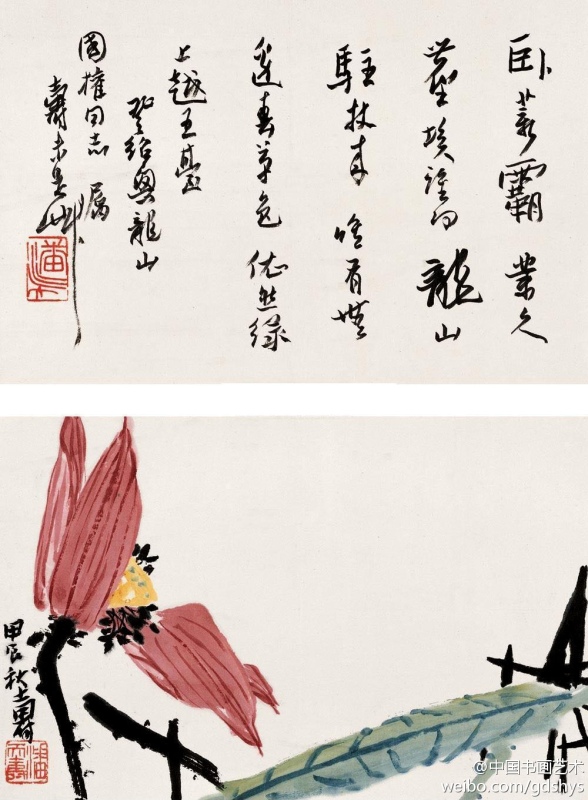 臥薪霸業久
塵埃誰向龍山
駐杖來唯有無
邊春草色依然綠
上越王臺
登紹興龍山
國權同志屬
壽未是艸
甲辰秋壽
潘天壽
@中国书画艺术
weibo.com/gdshys